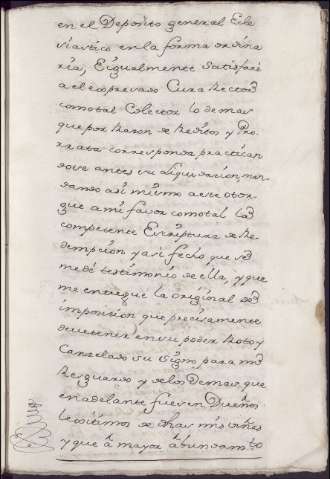 en el Deposito general Ecle
siastico en la forma ordina
ria, E igualmente satisfaré
a el expresado Cura Rector
como tal Colector lo demas
que por Razon de Reditos y Pro
rrata corresponda, practican
dose antes su liquidacion man
dando asi mismo a este otor
gue a mi favor como tal la
competente Escriptura de Re
dempcion y asi fecho, que se
me dé testimonio de ella, y que
me entregue la original de
imposicion que precisamente
deve tener en su poder Roto y
Cancelado su signo, para mi
Resguardo y de los Demas que
en adelante fuesen Dueños
lexitimos de dhas mis viñas
y que a mayor abundamto